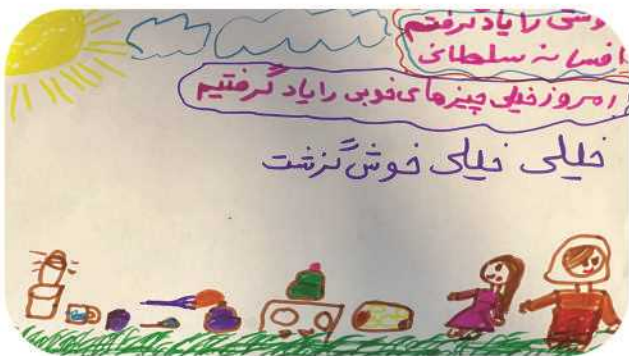 دوستی را یاد گرفتم
افسانه سلطانی
امروز خیلی چیزهای خوبی را یاد گرفتیم
خیلی خیلی خوش گزشت